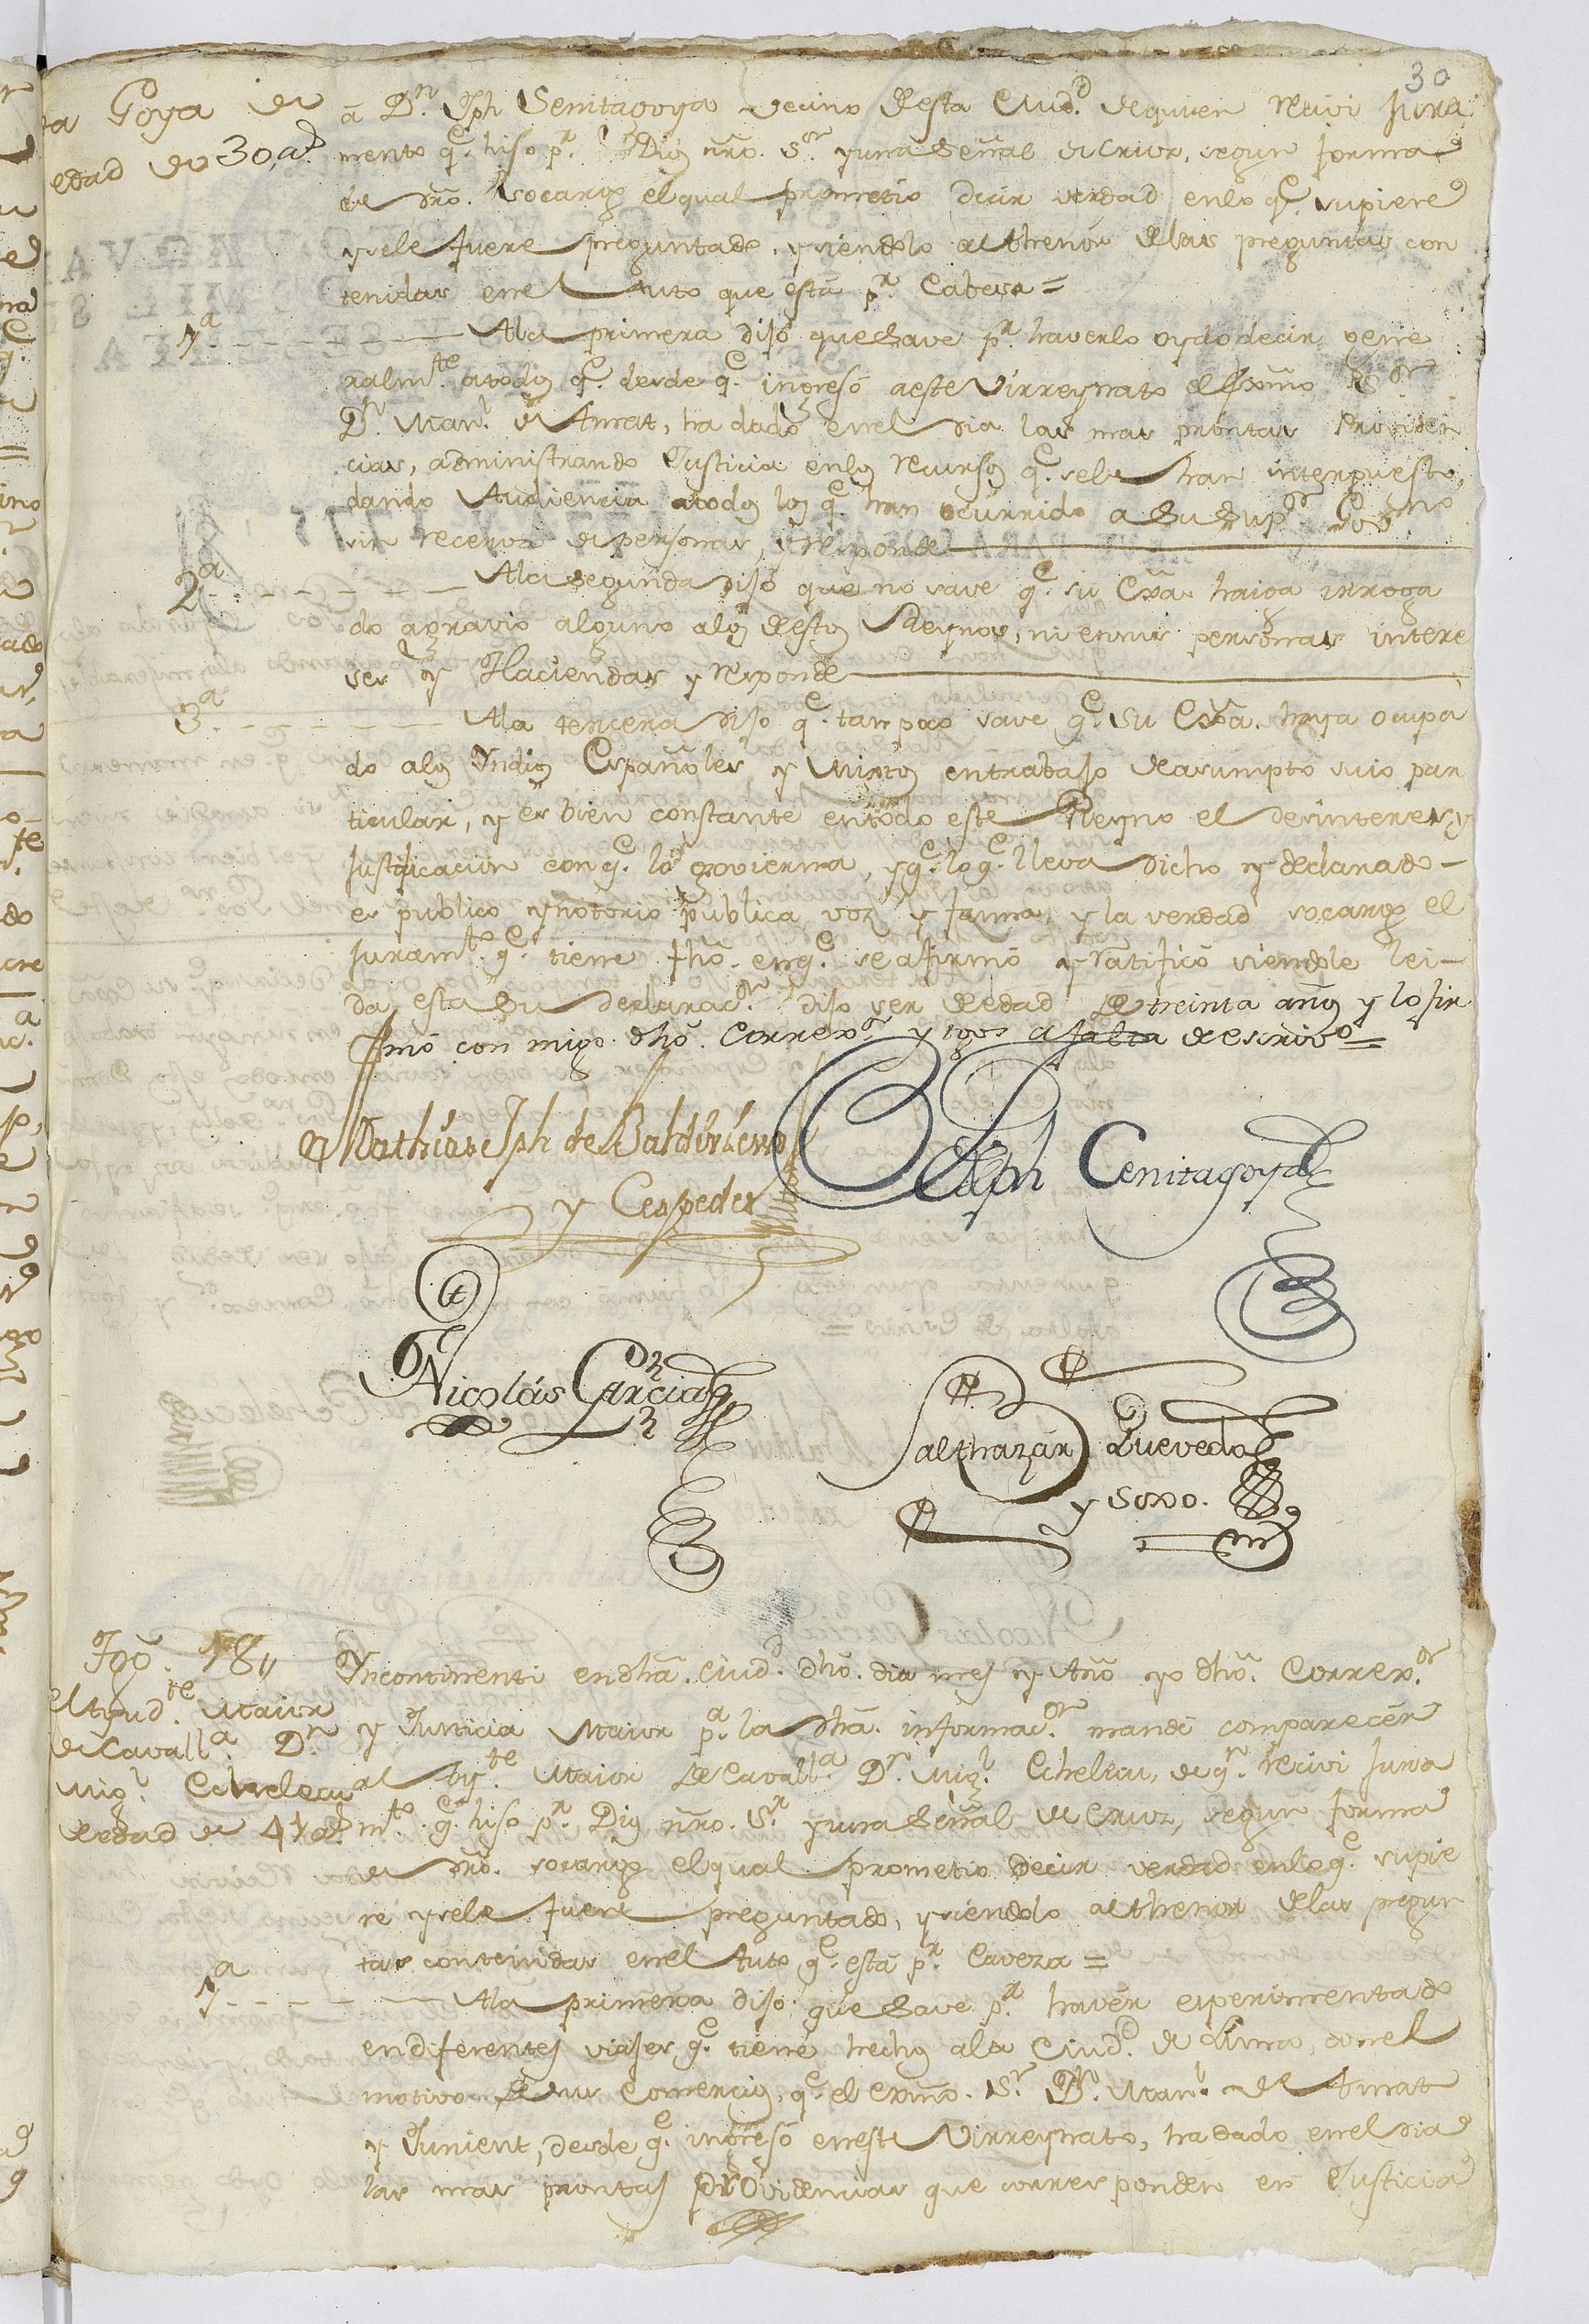 30
ta Goya de
edad de 30, a.s
a D.n Jph Senitagoya vecino desta Ciud.d de quien recivi jura
mento q.e hiso p.r Dios nrõ. S.or y una Señal de Cruz, segun forma
de drõ. socargo el qual prometio decir verdad en lo q.e supiere
y sele fuere preguntado, y siendolo al thenor delas preguntas con
tenidas en el Auto que está p.r Cabesa =
1.a - - - - - Ala primera dijo que Save p.r haverlo oydo decir gene
ralm.te a todos q.e desde q.e ingresó a este Virreynato el Exmõ S.or
D.n Man.l de Amat, ha dado en el dia las mas prontas Providen
cias, administrando Justicia enlos recursos q.e sele han interpuesto,
dando Audiencia a todos los q.e han ocurrido a Su Sup.or Gov.no
sin reserva de personas, y responde
2.a - - - - - Ala segunda dijo que no save q.e su Exã. haiga irroga
do agravio alguno alos destos Reynos, ni en sus personas intere
ses y Haciendas y responde
3.a - - - - - Ala tercera dijo q.e tampoco save q.e Su Exã. haya ocupa
do alos Yndios Españoles y Mixtos en trabajo de asumpto suio par
ticular, y es bien constante en todo este Reyno el desinteres y
Justificacion con q.e lo govierna, y q.e lo q.e lleva dicho y declarado -
es publico y notorio publica voz y fama, y la verdad socargo el
Juram.to q.e tiene fhõ. en q.e se afirmó y ratificó siendole lei-
da esta Su declarac.on dijo ser de edad de treinta años y lo fir
mó con migo dhõ. Correx.or y tgos a falta de escrivo =
Mathias Jph de Baldivieso
y Cespedes
Joseph Cenitagoya
Nicolás Garcia
Balthazár Quevedo
y Soxo.
Tgõ. 18,,
el Ayud.te Maior
de Cavall.a D.n
Mig.l Echelecu
de edad de 41 a.s
Yncontinenti en dhã. Ciud.d dhõ. dia mes y Año yo dhõ. Correx.or
y Justicia Maior p.a la dhã. informac.on mandé comparecér
al Ay.te Maior de Cavall.a D.n Mig.l Echelecu, de q.n recivi Jura
m.to q.e hiso p.r Dios nrõ. S.r y una Señal de Cruz, segun forma
de drõ. socargo el qual prometio decir verdad enlo q.e supie
re y sele fuere preguntado, y siendolo al thenor delas pregun
tas contenidas en el Auto q.e está p.r Caveza =
1.a - - - - - Ala primera dijo que Save p.r havér esperimentado
en diferentes viajes q.e tiene hechos ala Ciud.d de Lima, con el
motivo de sus Comercios, q.e el Exmõ. S.r D.n Man.l de Amat
y Junient, desde q.e ingresó en este Virreynato, ha dado en el dia
las mas prontas providencias que corresponden en Justicia